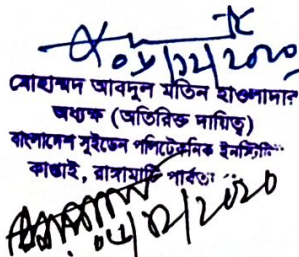 ০১/১২/২০২০
মোহাম্মদ আবদুল মতিন হাওলাদার
অধ্যক্ষ (অতিরিক্ত দায়িত্ব)
বাংলাদেশ সুইডেন পলিটেকনিক ইনস্টিটি
কাপ্তাই, রাঙ্গামাটি পার্বত্য
/১২/২০২০